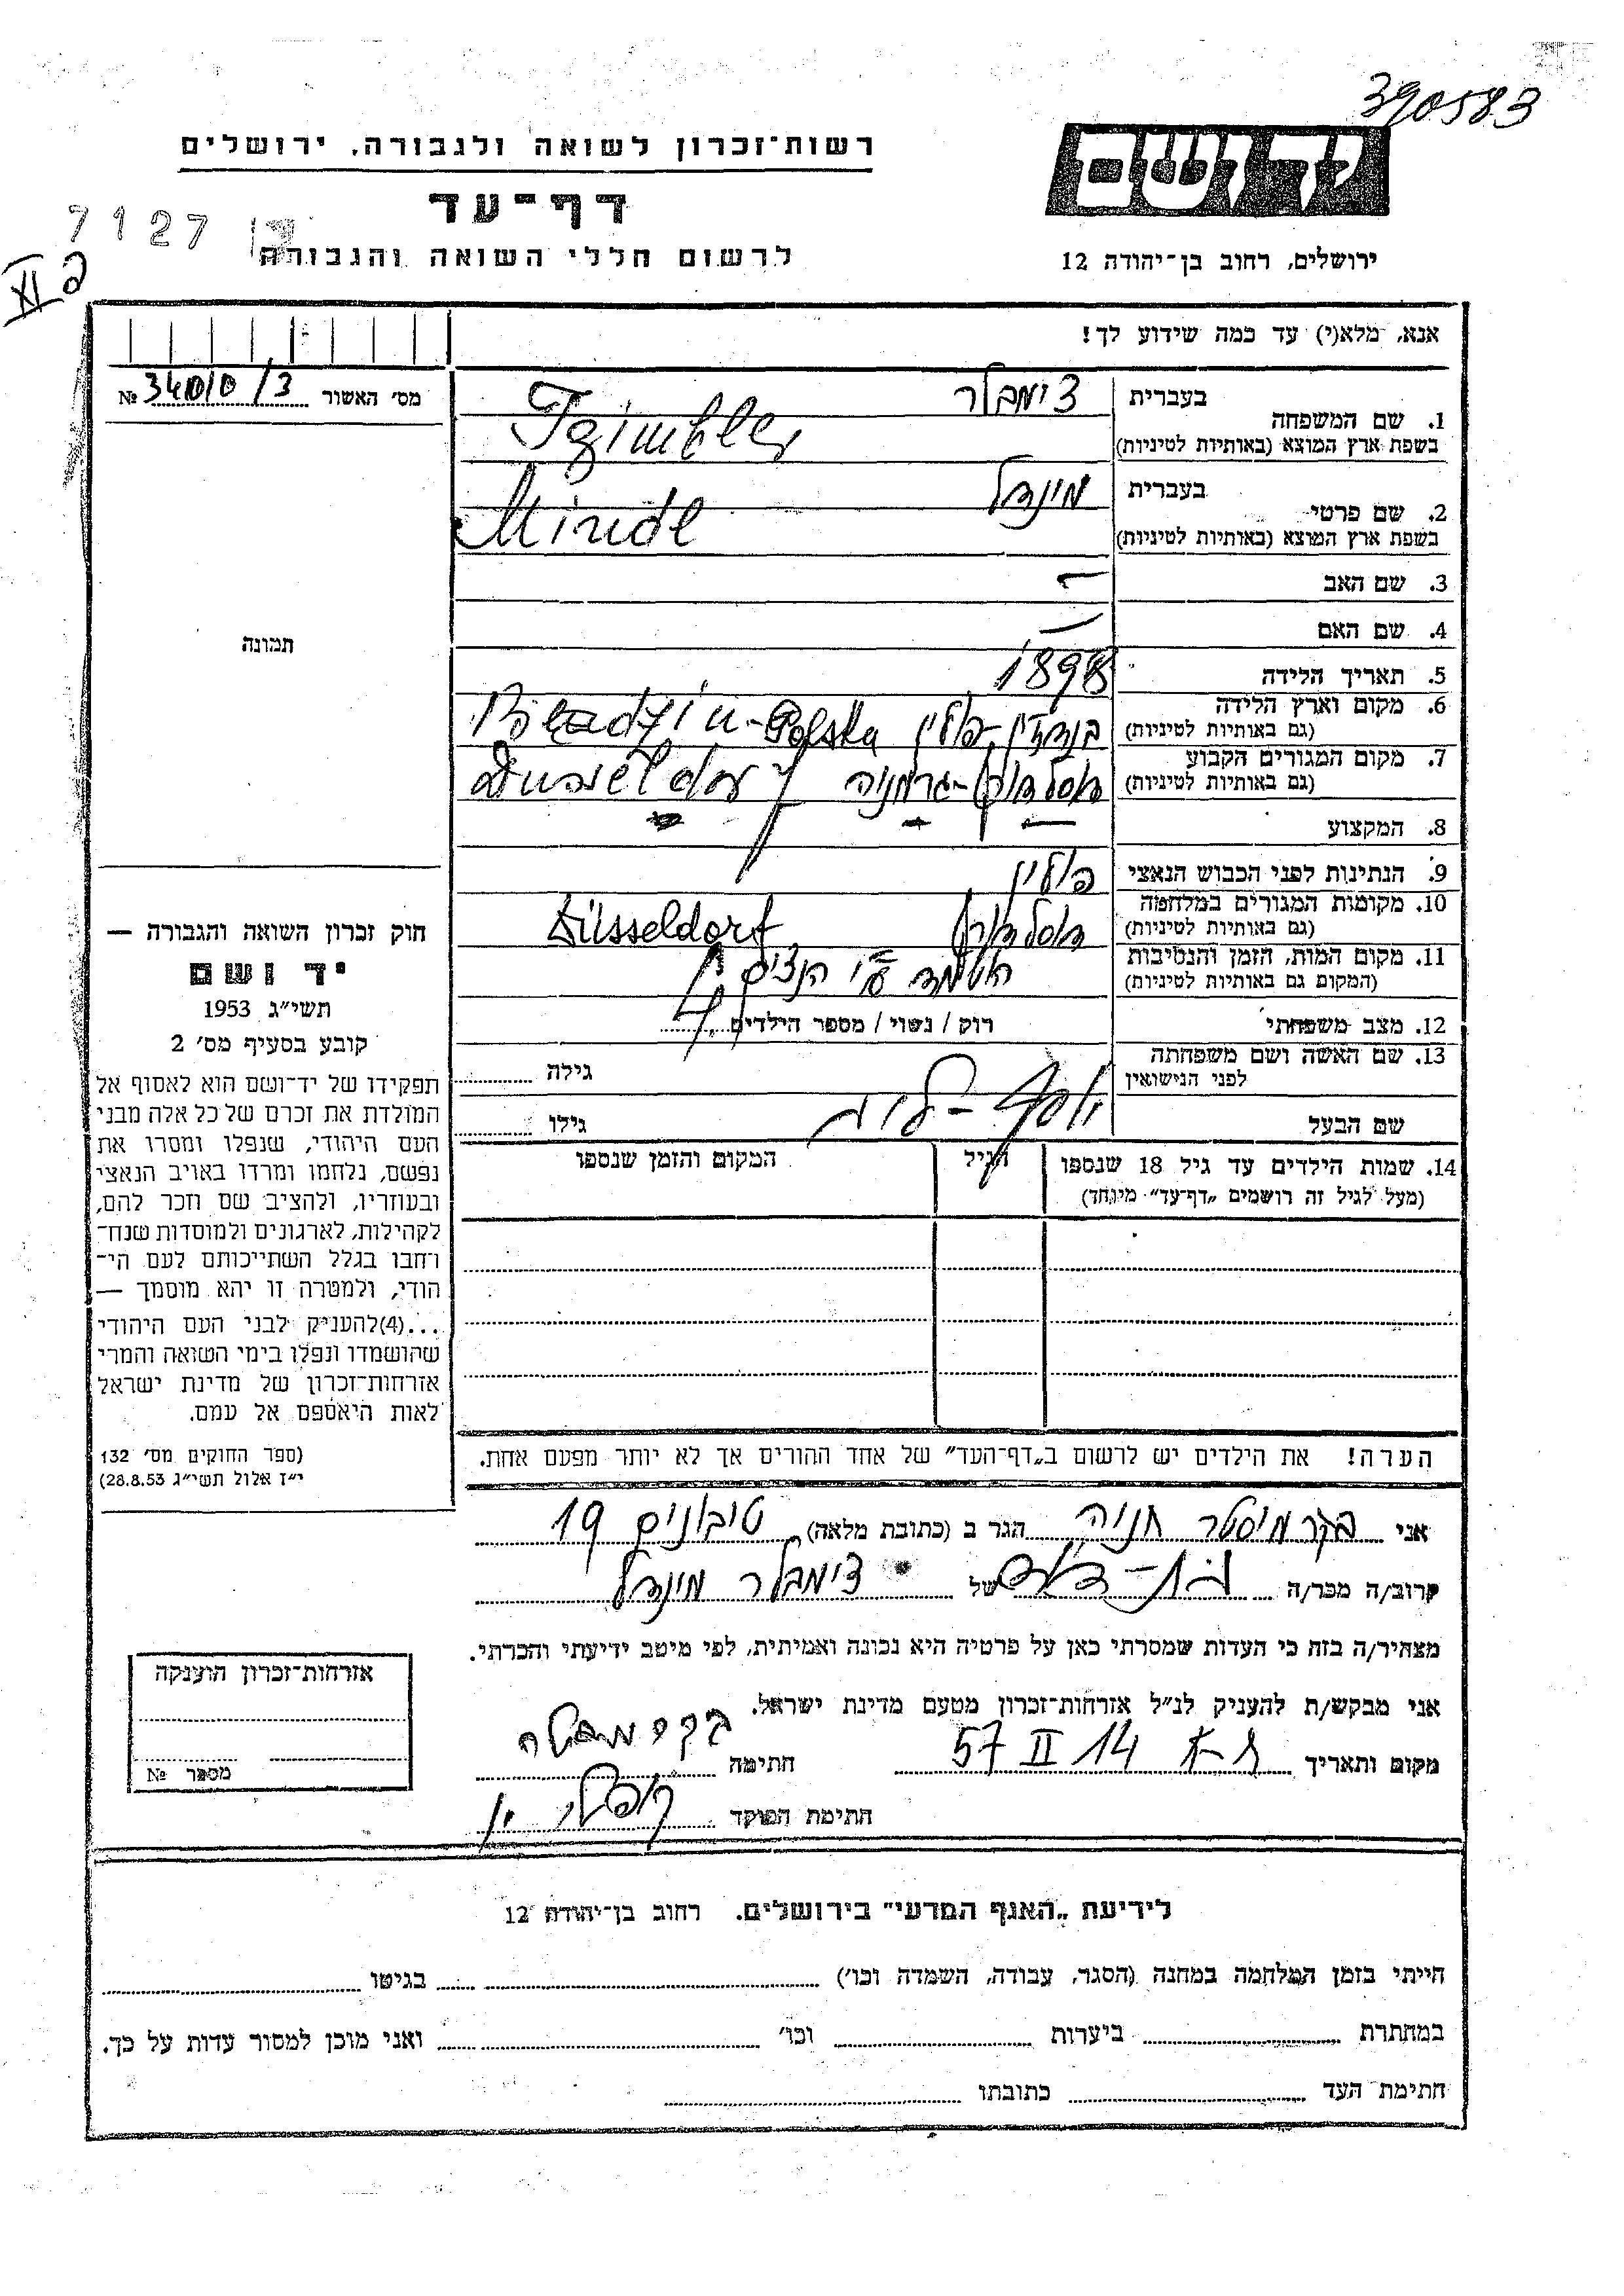 390583
רשות־זכרון לשואה ולגבורה, ירושלים
יד ושם
דף־עד
7127
לרשום חללי השואה והגבורה
ירושלים, רחוב בן־יהודה 12
אנא, מלא(י) עד כמה שידוע לך!
מס׳ האשור 34010/3 №
1. שם המשפחה
בעברית צימבלר
בשפת ארץ המוצא (באותיות לטיניות) Tzimbler
2. שם פרטי
בעברית מינדל
בשפת ארץ המוצא (באותיות לטיניות) Mindl
3. שם האב –
4. שם האם –
תמונה
5. תאריך הלידה 1898
6. מקום וארץ הלידה
(גם באותיות לטיניות) בנדזין־פולין Będzin-Polska
7. מקום המגורים הקבוע
(גם באותיות לטיניות) דוסלדורף־גרמניה Dusseldorf
8. המקצוע –
9. הנתינות לפני הכבוש הנאצי פולין
10. מקומות המגורים במלחמה
(גם באותיות לטיניות) דוסלדורף Düsseldorf
11. מקום המות, הזמן והנסיבות
(המקום גם באותיות לטיניות) הושמד ע״י הנצים
12. מצב משפחתי רוק / נשוי / מספר הילדים
13. שם האשה ושם משפחתה
לפני הנישואין
גילה
שם הבעל יוסף־
גילו
14. שמות הילדים עד גיל 18 שנספו
(מעל לגיל זה רושמים „דף־עד״ מיוחד)
הגיל
המקום והזמן שנספו
חוק זכרון השואה והגבורה —
יד ושם
תשי״ג 1953
קובע בסעיף מס׳ 2
תפקידו של יד־ושם הוא לאסוף אל
המולדת את זכרם של כל אלה מבני
העם היהודי, שנפלו ומסרו את
נפשם, נלחמו ומרדו באויב הנאצי
ובעוזריו, ולהציב שם וזכר להם,
לקהילות, לארגונים ולמוסדות שנח־
רחבו בגלל השתייכותם לעם הי־
הודי, ולמטרה זו יהא מוסמך —
...(4)להעניק לבני העם היהודי
שהושמדו ונפלו בימי השואה והמרי
אזרחות־זכרון של מדינת ישראל
לאות היאספם אל עמם.
(ספר החוקים מס׳ 132
י״ז אלול תשי״ג 28.8.53)
הערה! את הילדים יש לרשום ב„דף־העד״ של אחד ההורים אך לא יותר מפעם אחת.
אני בקרמיסטר חניה הגר ב (כתובת מלאה) טיבונים 19
קרוב/ה מכר/ה בת־דוד של צימבלר מינדל
מצהיר/ה בזה כי העדות שמסרתי כאן על פרטיה היא נכונה ואמיתית, לפי מיטב ידיעתי והכרתי.
אני מבקש/ת להעניק לנ״ל אזרחות־זכרון מטעם מדינת ישראל.
מקום ותאריך 14 II 57 חתימה בקרמיסטר
חתימת הפוקד
אזרחות־זכרון הוענקה
מספר №
לידיעת „האגף המדעי״ בירושלים. רחוב בן־יהודה 12
חייתי בזמן המלחמה במחנה (הסגר, עבודה, השמדה וכו׳) בגיטו
במחתרת ביערות וכו׳ ואני מוכן למסור עדות על כך.
חתימת העד כתובתו